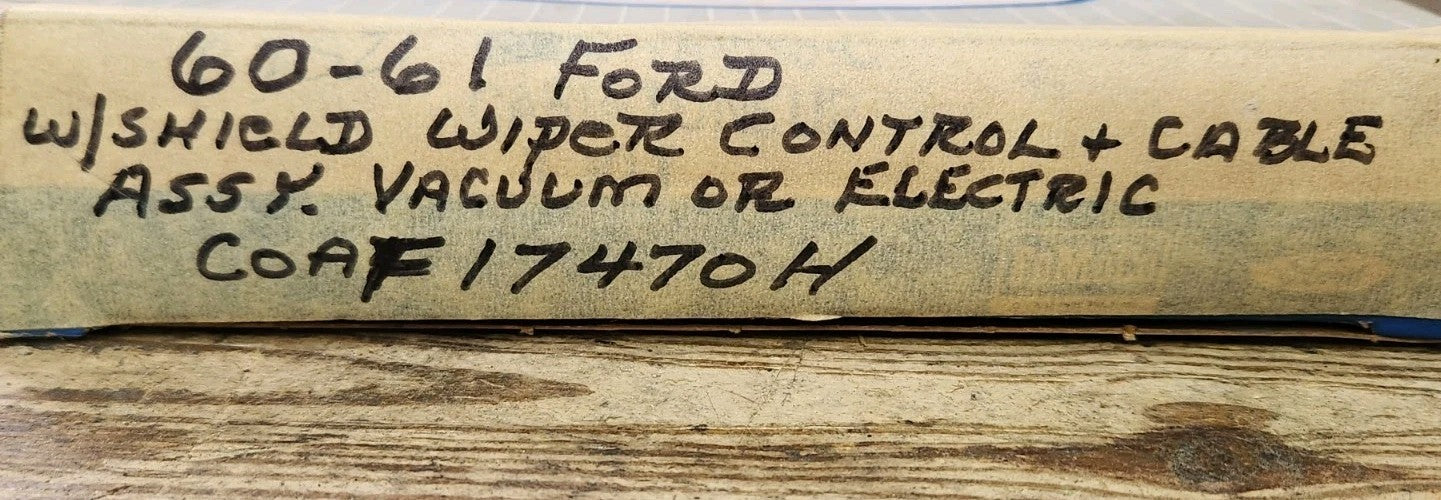 60-61 FORD
W/SHIELD WIPER CONTROL + CABLE
ASSY. VACUUM OR ELECTRIC
COAF 17470H